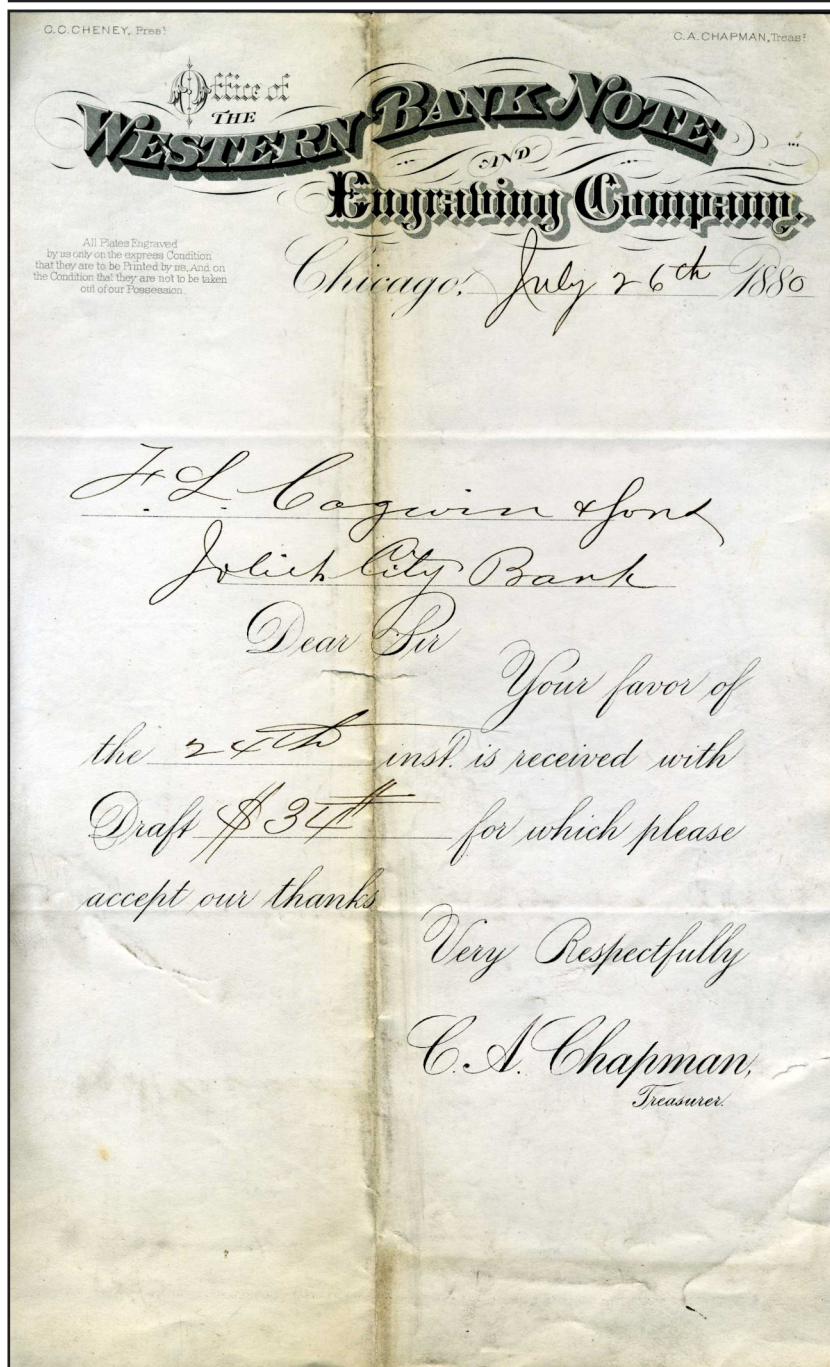 C.C. CHENEY, Prest
C.A. CHAPMAN, Treast
Office of
THE
WESTERN BANK NOTE
AND
Engraving Company.
All Plates Engraved
by us only on the express Condition
that they are to be Printed by us, And on
the Condition that they are not to be taken
out of our Possession.
Chicago, July 26th 1880
F. L. Cagwin & Sons
Joliet City Bank
Dear Sir
Your favor of
the 24th inst. is received with
Draft for which please
accept our thanks
Very Respectfully
C. A. Chapman,
Treasurer.